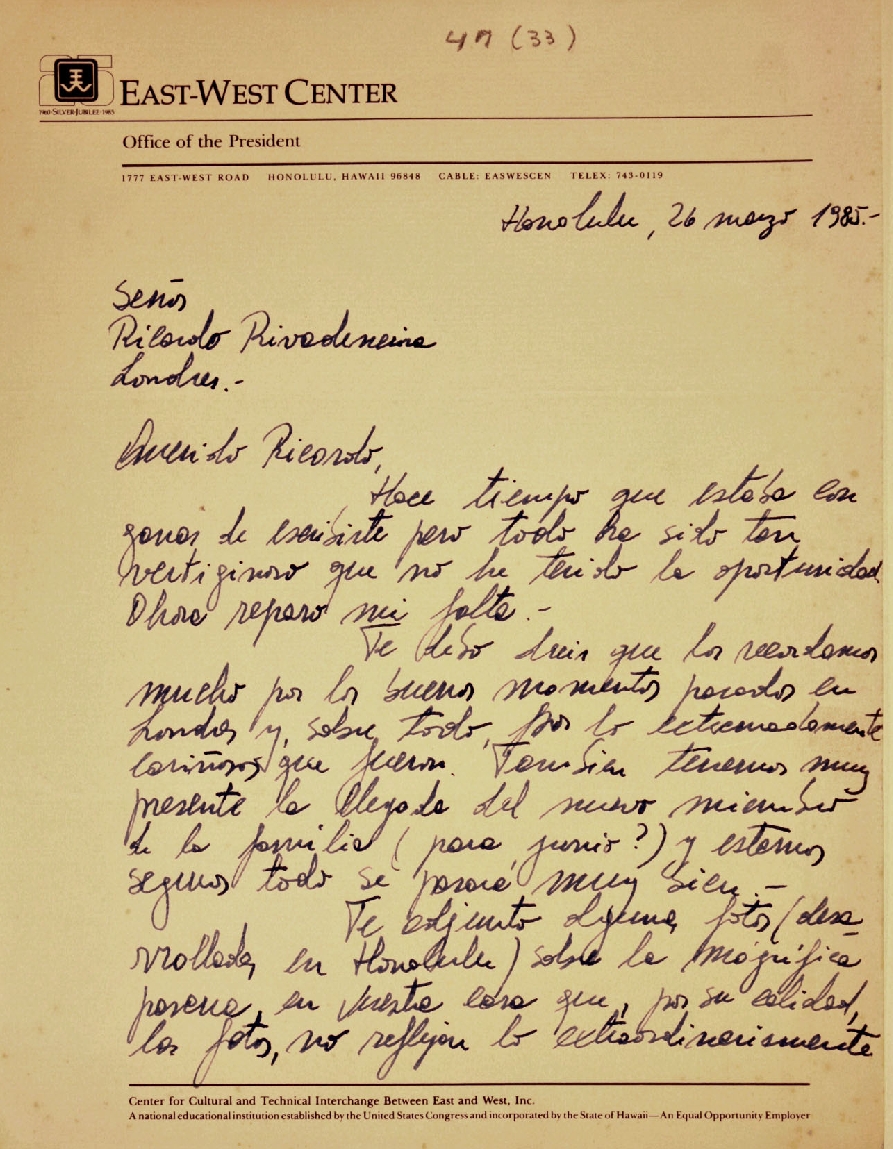 47 (33)
1960·SILVER·JUBILEE·1985
EAST-WEST CENTER
Office of the President
1777 EAST-WEST ROAD HONOLULU, HAWAII 96848 CABLE: EASWESCEN TELEX: 743-0119
Honolulu, 26 marzo 1985.-
Señor
Ricardo Rivadeneira
Londres.-
Querido Ricardo,
Hace tiempo que estaba con
ganas de escribirte pero todo ha sido tan
vertiginoso que no he tenido la oportunidad.
Ahora reparo mi falta.-
Te debo decir que los recordamos
mucho por los buenos momentos pasados en
Londres y, sobre todo, por lo extremadamente
cariñosos que fueron. También tenemos muy
presente la llegada del nuevo miembro
de la familia (para junio?) y estamos
seguros todo se pasará muy bien.-
Te adjunto algunas fotos (desa-
rrolladas en Honolulu) sobre la magnífica
en vuestra casa que, por su calidad,
las fotos, no reflejan lo extraordinariamente
Center for Cultural and Technical Interchange Between East and West, Inc.
A national educational institution established by the United States Congress and incorporated by the State of Hawaii—An Equal Opportunity Employer